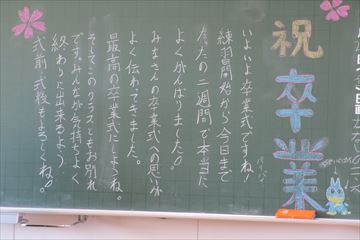 祝卒業
いよいよ卒業式ですね!
練習開始から今日まで
たったの二週間で本当に
よくがんばりました!
みなさんの卒業式への思いが
よく伝わってきました。
最高の卒業式にしようね。
そしてこのクラスともお別れ
です。みんなが気持ちよく
終わりに出来るよう、
式前式後もよろしくね!